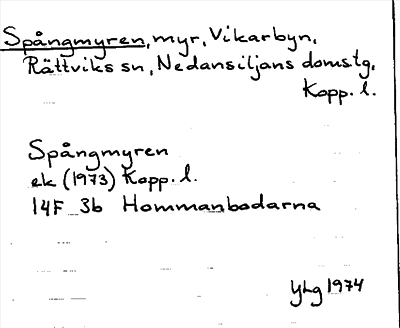 Spångmyren, myr, Vikarbyn,
Rättviks sn, Nedansiljans domstg,
Kopp. l.
Spångmyren
ek (1973) Kopp. l.
14F 3b Hommanbodarna
YLg 1974